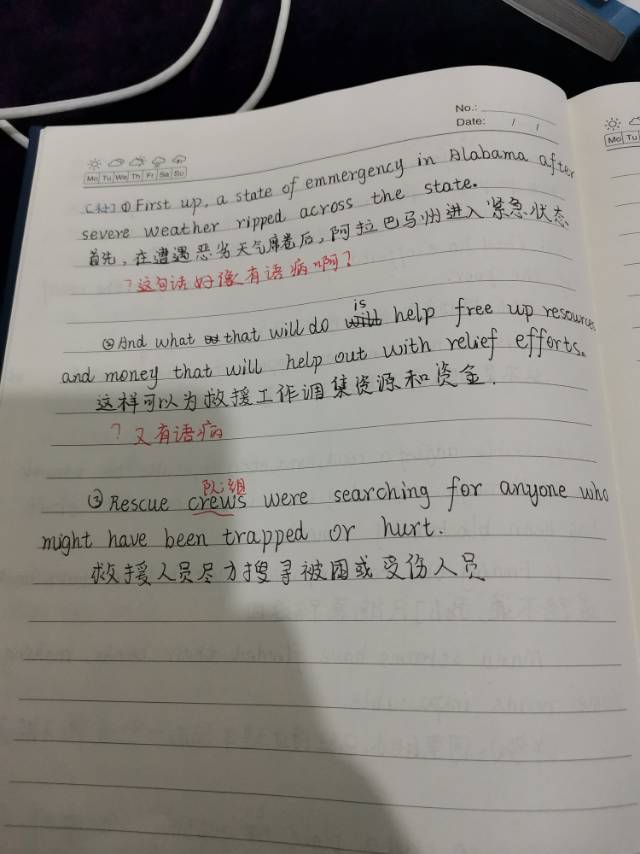 No.:
Date: / /
Mo Tu We Th Fr Sa Su
Mo Tu
①First up, a state of emmergency in Alabama after
severe weather ripped across the state.
首先,在遭遇恶劣天气席卷后,阿拉巴马州进入紧急状态
?这句话好像有语病啊?
②And what that will do is help free up resources
and money that will help out with relief efforts.
这样可以为救援工作调集资源和资金.
?又有语病
队;组
③Rescue crews were searching for anyone who
might have been trapped or hurt.
救援人员尽力搜寻被困或受伤人员